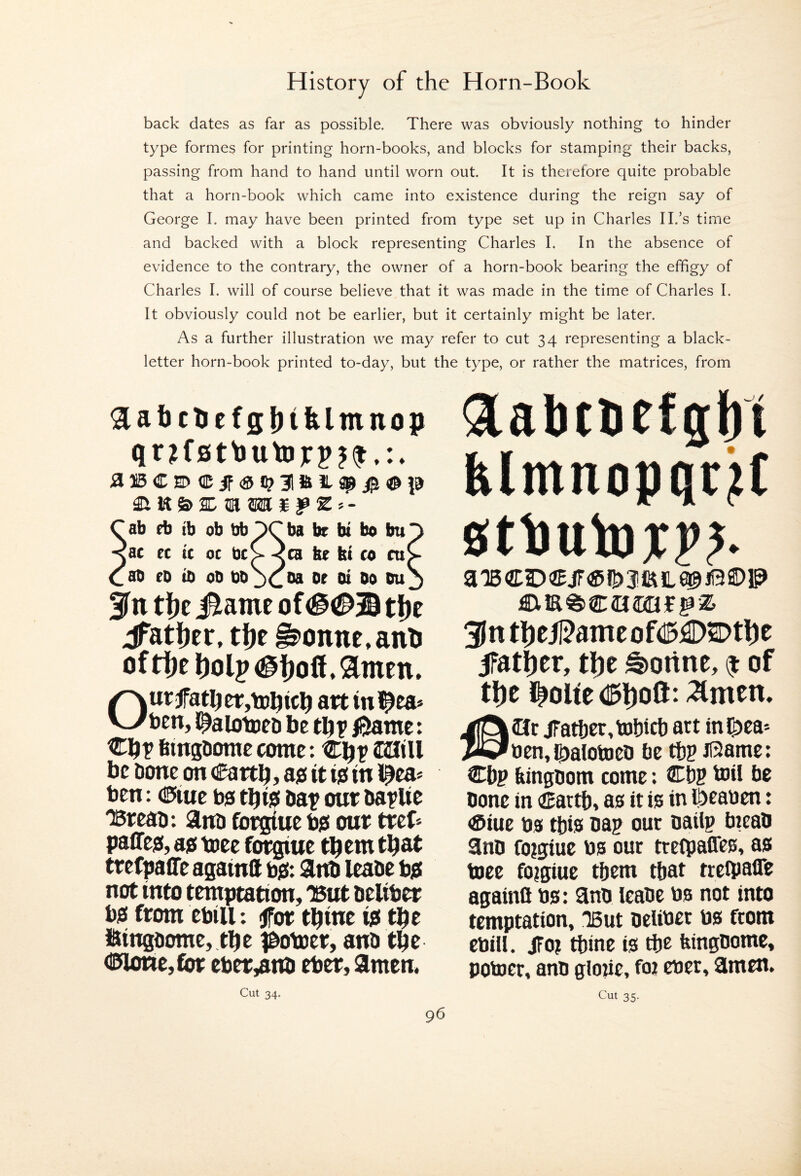 History of the Horn-Book
back dates as far as possible. There was obviously nothing to hinder
type formes for printing horn-books, and blocks for stamping their backs,
passing from hand to hand until worn out. It is therefore quite probable
that a horn-book which came into existence during the reign say of
George I. may have been printed from type set up in Charles II.'s time
and backed with a block representing Charles I. In the absence of
evidence to the contrary, the owner of a horn-book bearing the effigy of
Charles I. will of course believe that it was made in the time of Charles I.
It obviously could not be earlier, but it certainly might be later.
As a further illustration we may refer to cut 34 representing a black-
letter horn-book printed to-day, but the type, or rather the matrices, from
Aabcdefghiklmnop
qrꝛſstvuwxyzꝭ&.:.
A B C D E F G H I K L M N O P
Q R S T U W X Y Z : -
ab eb ib ob vb ba be bi bo bu
ac ec ic oc vc ca ke ki co cu
ad ed id od vd da de di do du
In the Name of GOD the
Father, the Sonne, and
of the holy Ghost. Amen.
Our Father, which art in Hea-
ven, Halowed be thy Name:
Thy kingdome come: Thy Will
be done on Earth, as it is in Hea-
ven: Giue vs this day our daylie
Bread: And forgiue vs our treſ-
paſſes, as wee forgiue them that
treſpaſſe against vs: And leade vs
not into temptation, But deliver
vs from evill: For thine is the
Kingdome, the Power, and the
Glorie, for ever, and ever, Amen.
Cut 34.
Aabcdefghi
klmnopqrꝛſ
stvuwxyz.
A B C D E F G H I K L M N O P
Q R S T U W X Y Z
In the Name of GOD the
Father, the Sonne, & of
the Holie Ghost: Amen.
OUr Father, which art in Hea-
ven, Halowed be thy Name:
Thy kingdom come: Thy wil be
done in Earth, as it is in Heaven:
Giue vs this day our daily bread
And forgiue vs our treſpaſſes, as
wee forgiue them that treſpaſſe
against vs: And leade vs not into
temptation, But deliver vs from
evill. For thine is the kingdome,
power, and glorie, for ever, Amen.
Cut 35.
96